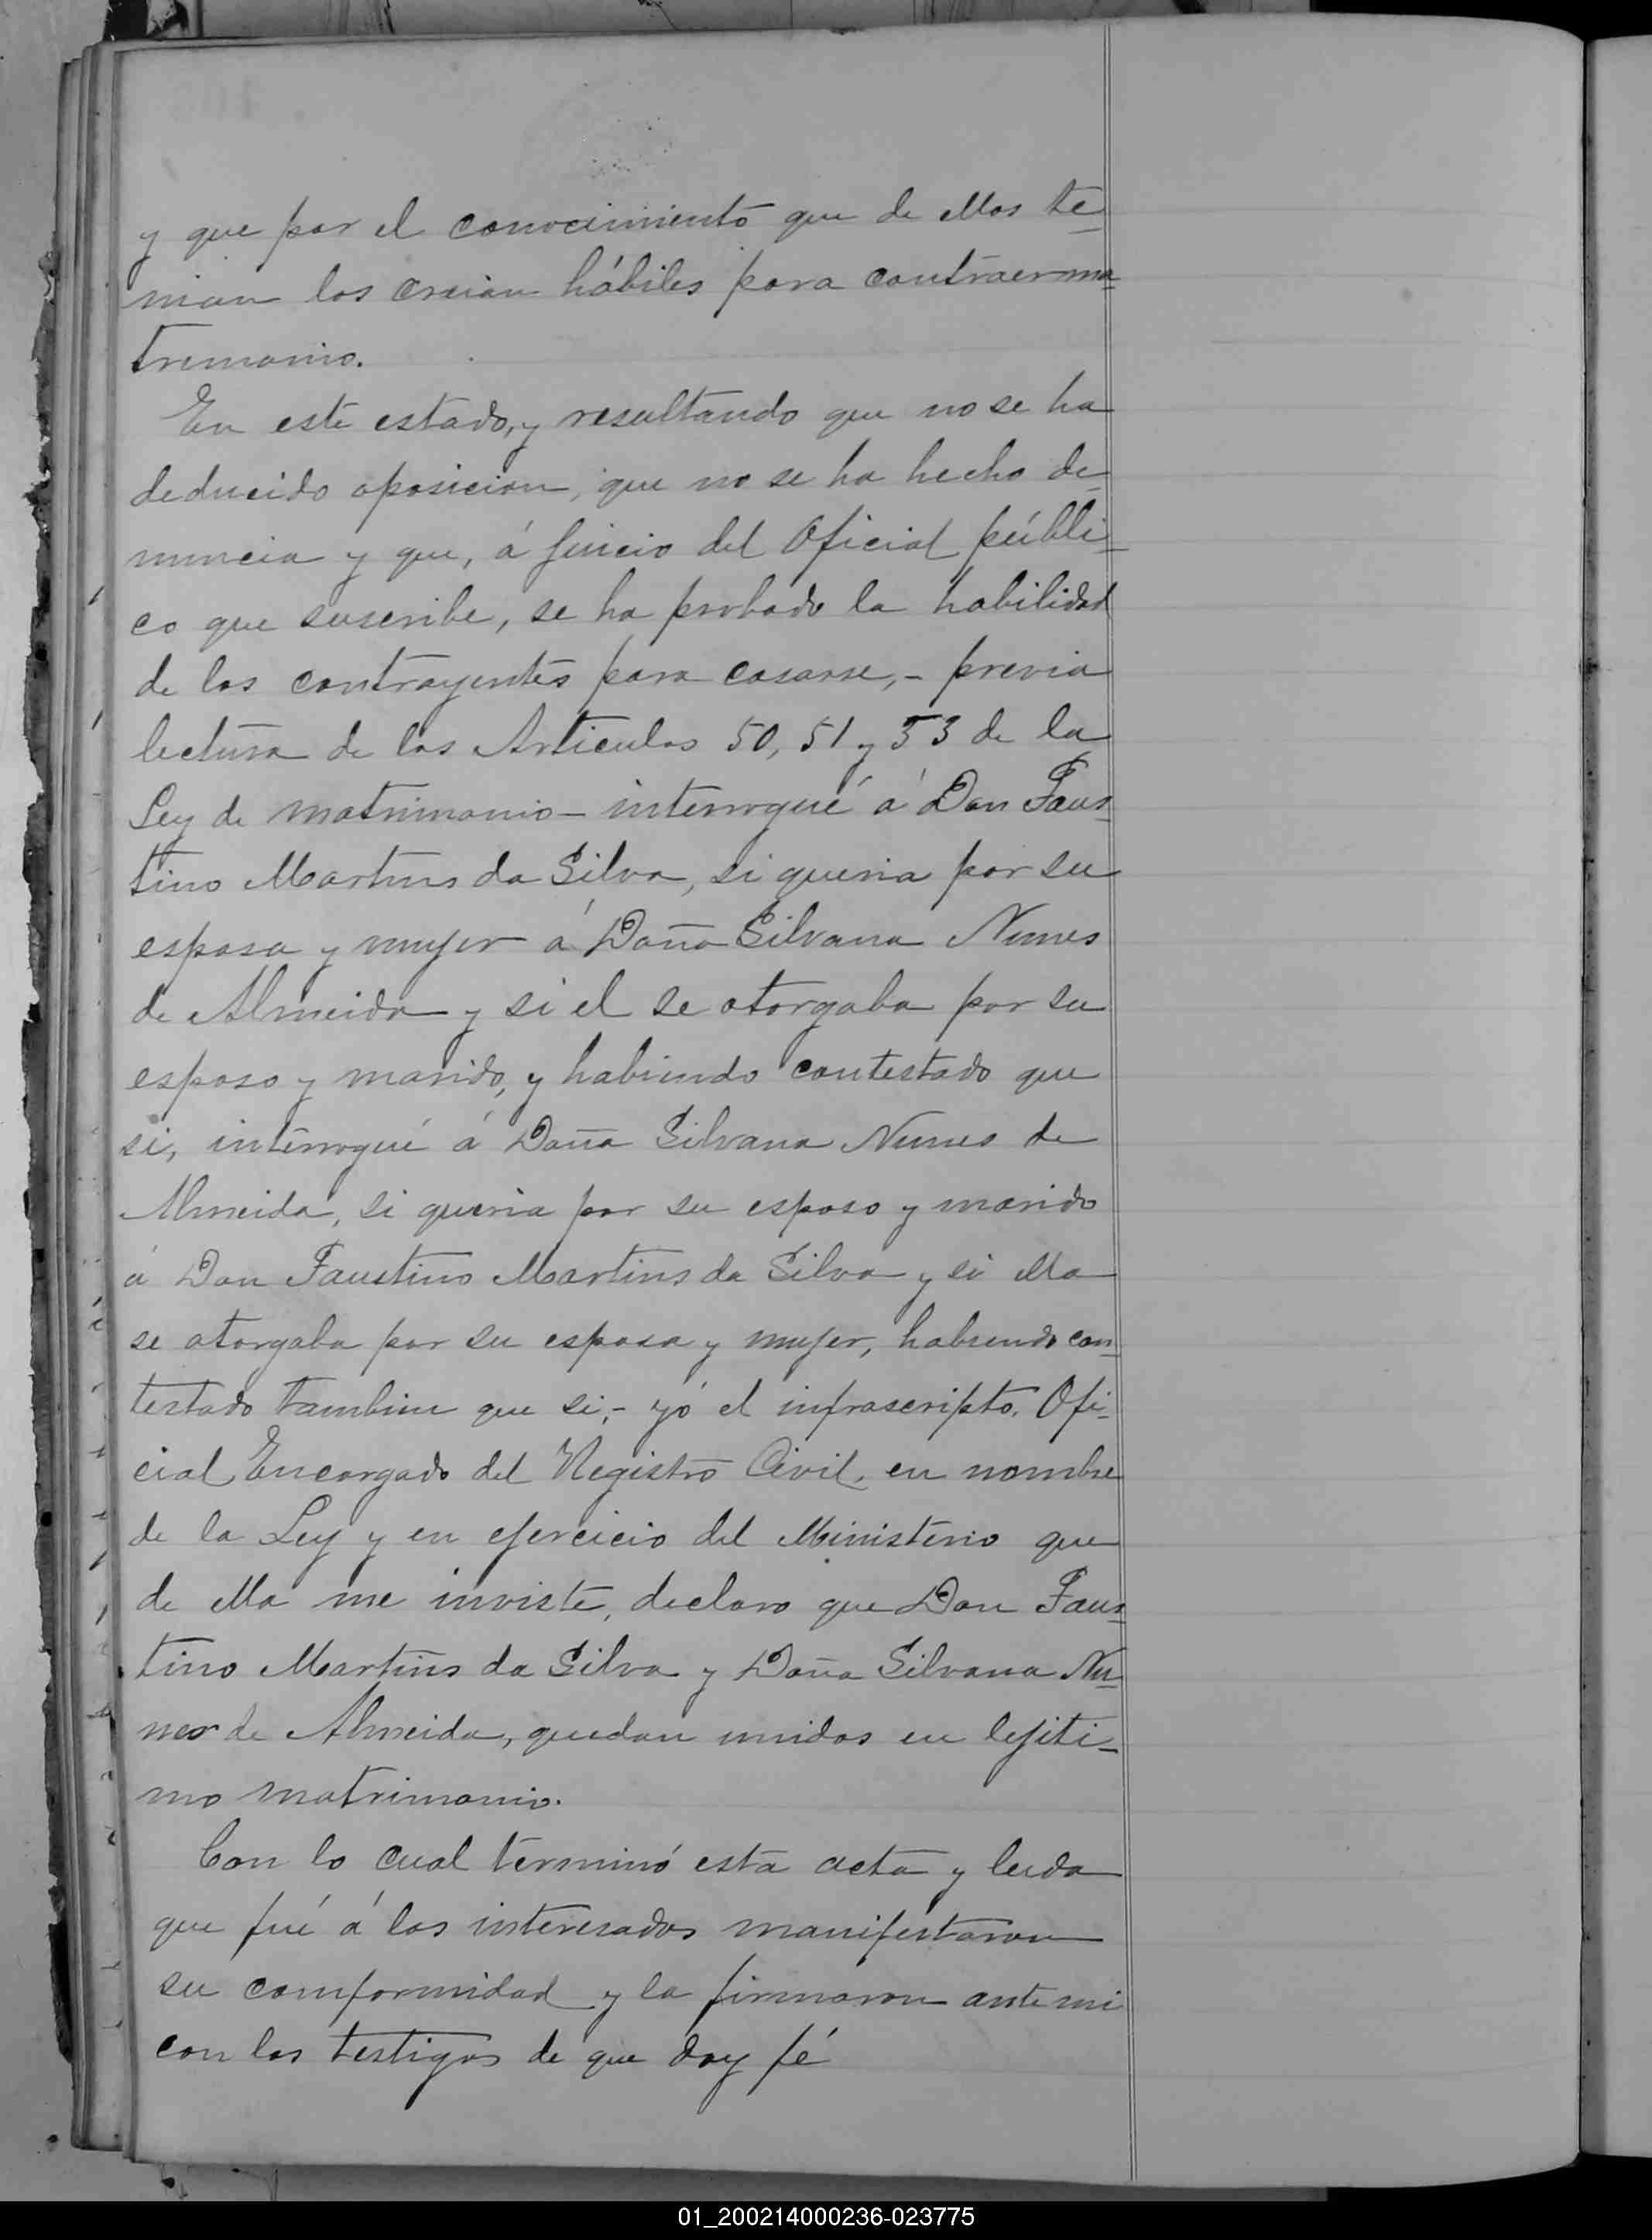 y que por el conocimiento que de ellos te-
nian los creian hábiles para contraer ma-
tremonio.
En este estado, y resultando que no se ha
deducido oposicion, que no se ha hecho de-
nuncia y que, á juicio del Oficial públi-
co que suscribe, se ha probado la habilidad
de los contrayentes para casarse,- previa
lectura de los Articulos 50, 51 y 53 de la
Ley de matrimonio- interrogué á Don Faus-
tino Martins da Silva, si queria por su
esposa y mujer á Doña Silvana Nunes
de Almeida y si el se otorgaba por su
esposo y marido, y habiendo contestado que
si, interrogué á Doña Silvana Nunes de
Almeida, si queria por su esposo y marido
á Don Faustino Martins da Silva y si ella
se otorgaba por su esposa y mujer, habiendo con-
testado tambien que si,- yó el infrascripto, Ofi-
cial Encargado del Registro Civil, en nombre
de la Ley y en ejercicio del Ministerio que
de ella me inviste, declaro que Don Faus-
tino Martins da Silva y Doña Silvana Nu-
nes de Almeida, quedan unidos en lejiti-
mo matrimonio.
Con lo cual terminó esta acta y leida
que fué á los interesados manifestaron
su comformidad y la firmaron ante mi
con los testigos de que doy fé
01_200214000236-023775